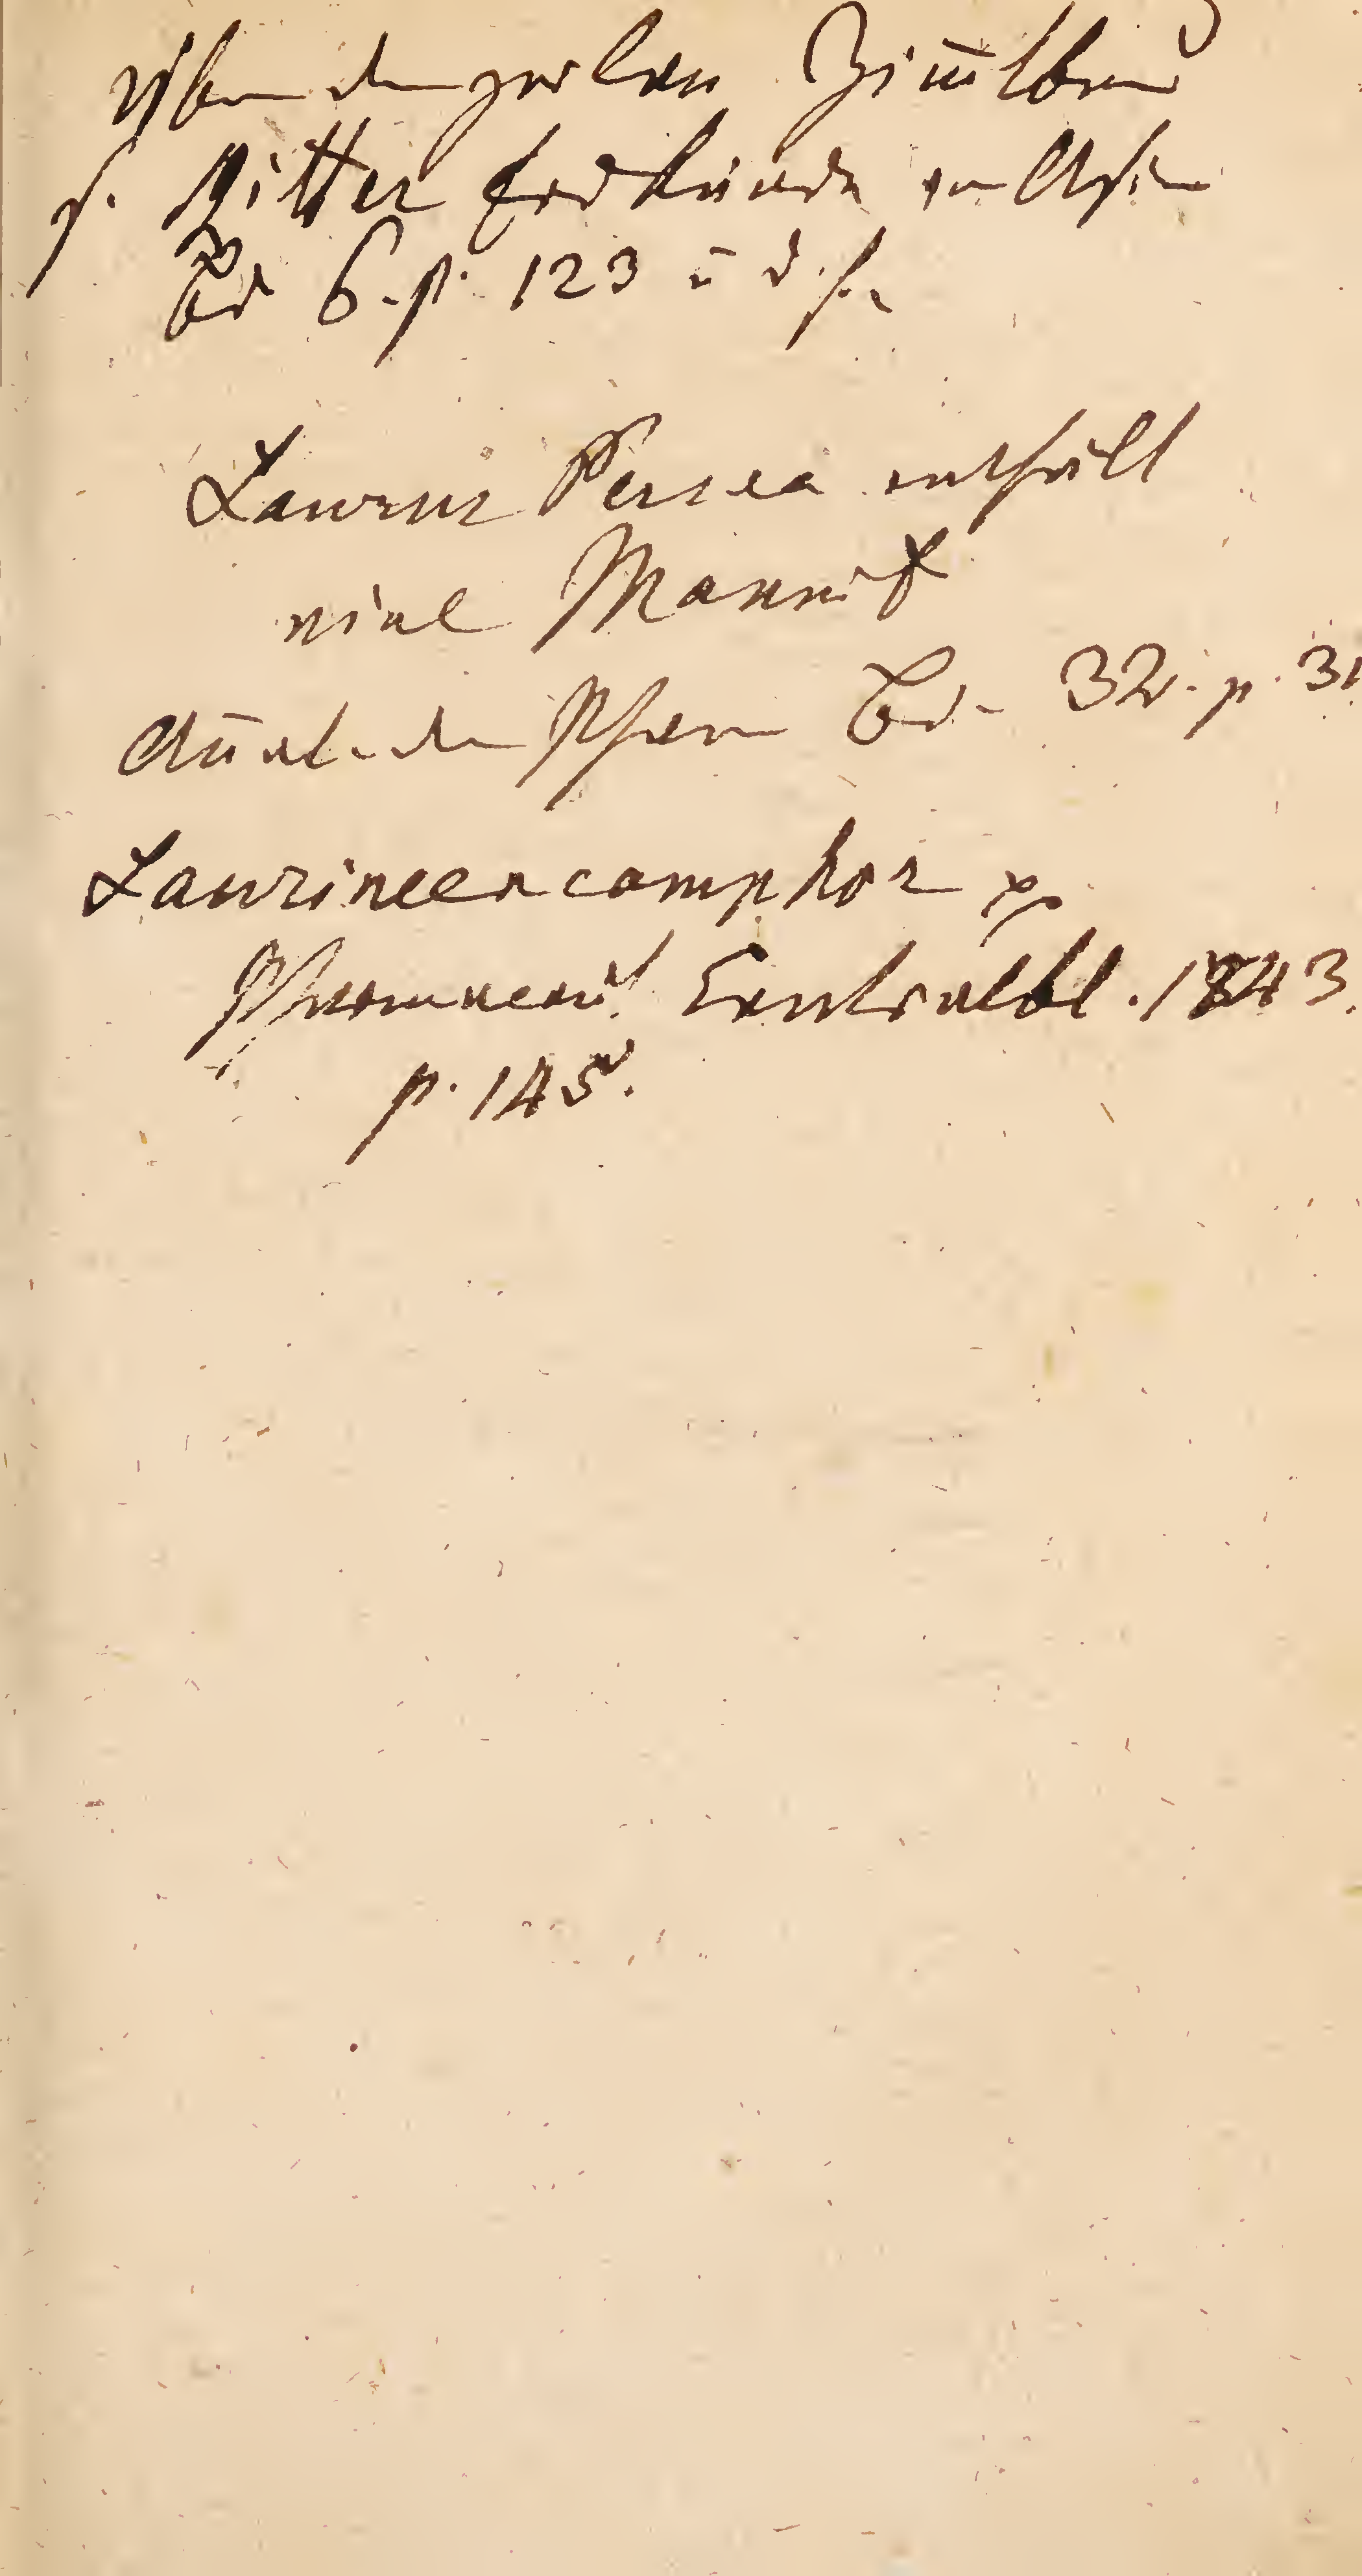 Über den zeylan Zimtbau
s. Ritter Erdkunde von Asien
Bd 6. p. 123 u d. f.
Laurus Persea enthält
viel Mannit
Annal. der Pharm Bd. 32. p. 31
Laurineencamphor
Pharmaceut. Centralbl. 1843.
p. 145.